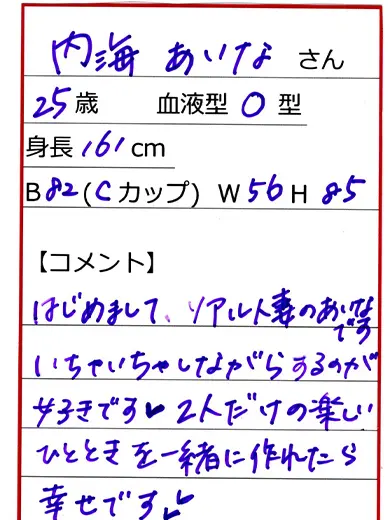 内海 あいな さん
25歳 血液型 O 型
身長 161 cm
B 82 (C カップ) W 56 H 85
【コメント】
はじめまして、リアル人妻のあいな
です
いちゃいちゃしながらするのが
好きです✓ 2人だけの楽しい
ひとときを一緒に作れたら
幸せです✓✓